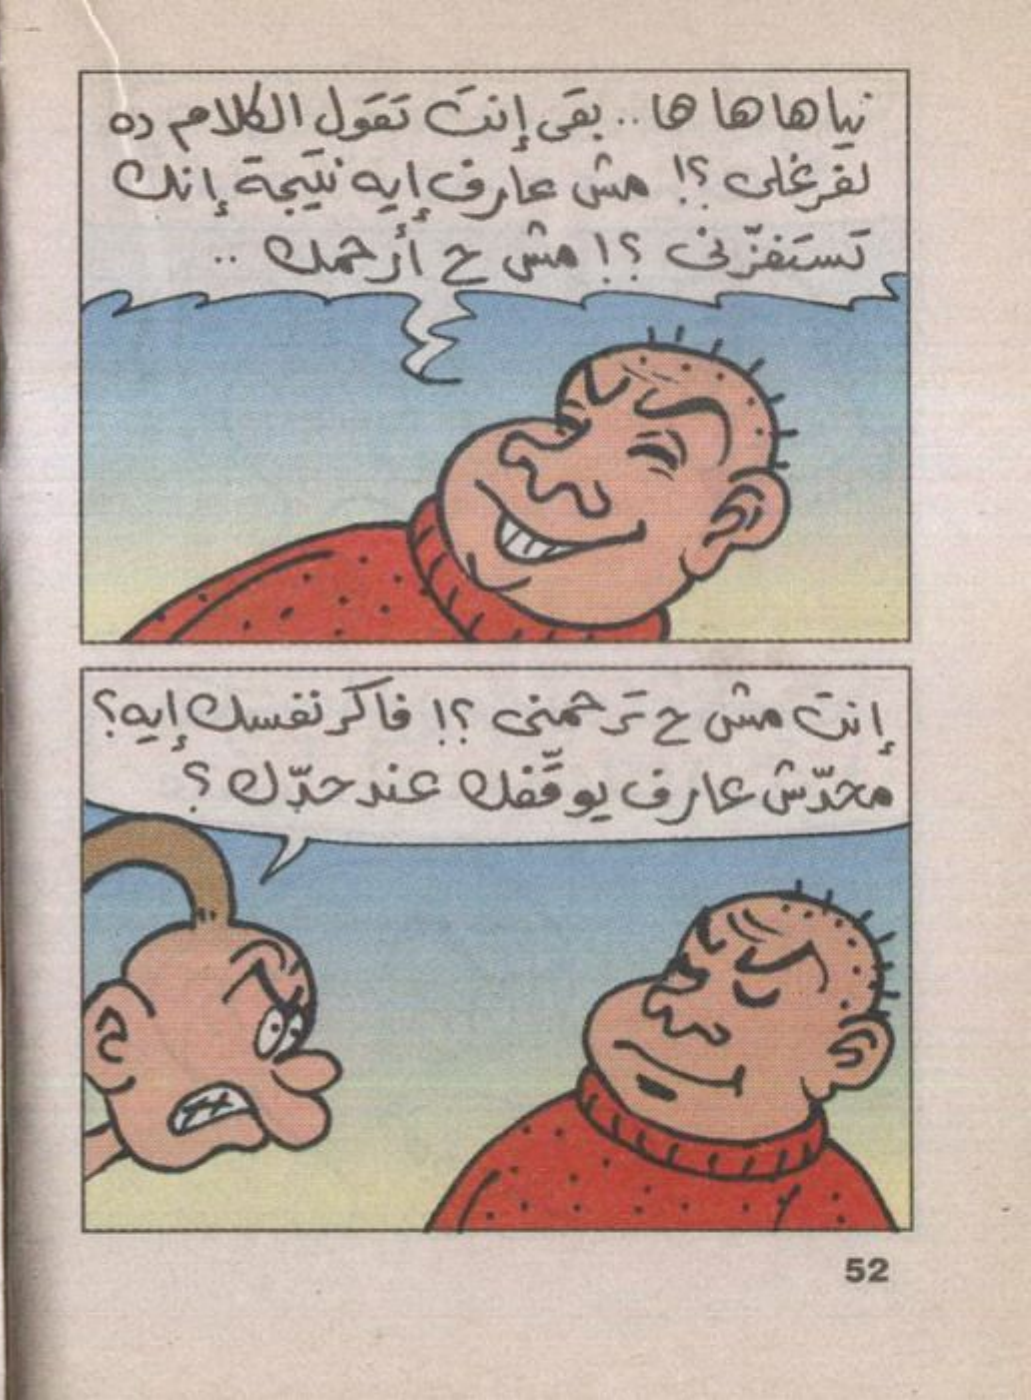 نياها ها ها .. بقى إنتَ تَقول الكلام ده
لفرغلى ؟! مش عارف إيه نتيجة إنك
تستفزّنى ؟! مش ح أرحمك ..
إنتَ مش ح تَرحمنى ؟! فاكر نفسك إيه؟
محدّش عارف يوقّفك عند حدّك ؟
52